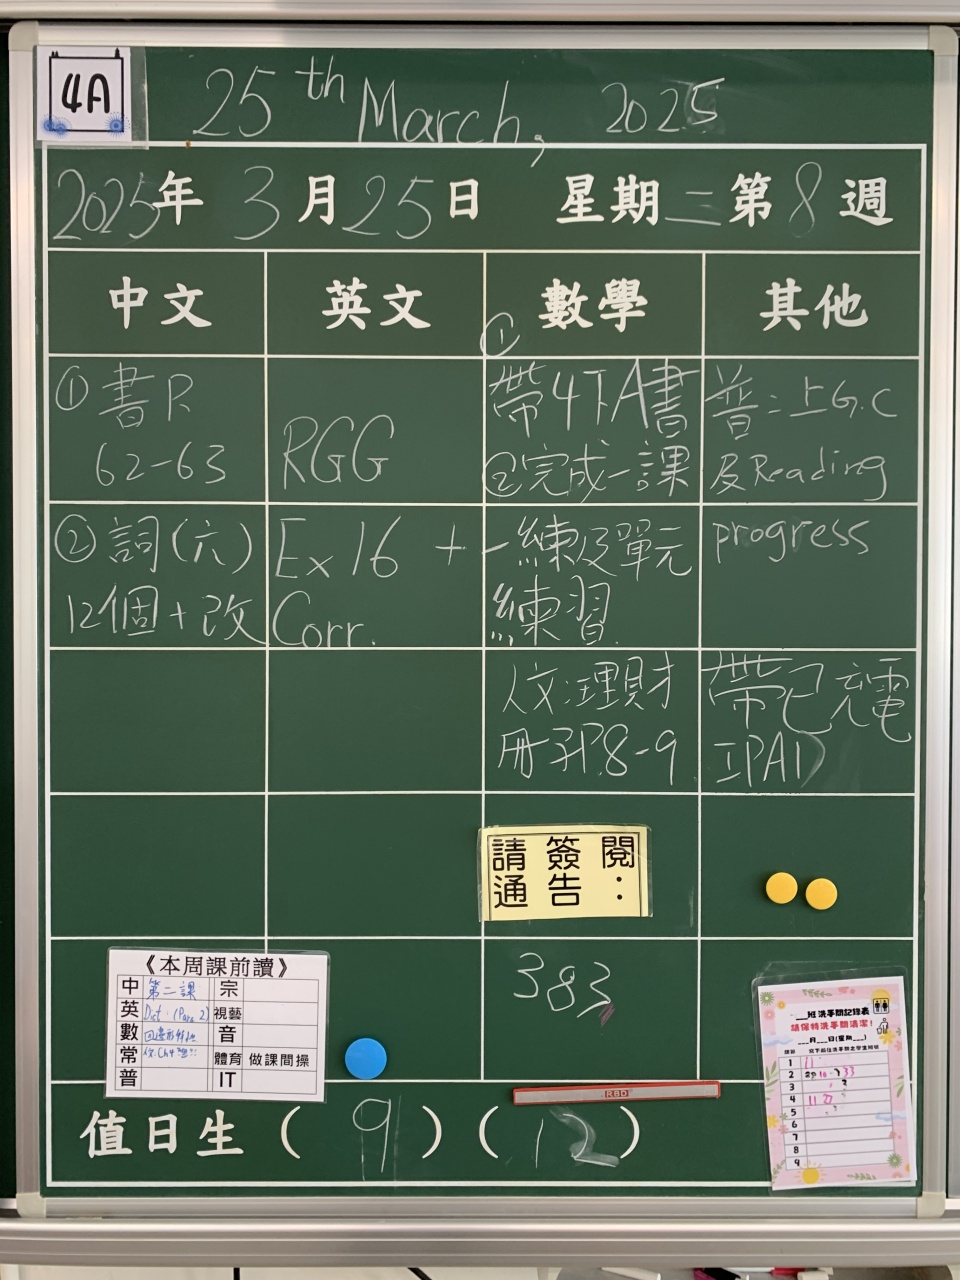 4A
25th March, 2025
2025年 3月25日 星期二第8週
中文
英文
數學
其他
① 書P.
62-63
② 詞(六)
12個+改
RGG
Ex 16 +
Corr.
①
帶4下A書
②完成一課
一練及單元
練習
人文:理財
冊子P.8-9
普:上G.C
及Reading
progress
帶已充電
IPAD
請簽閱
通告：
383
《本周課前讀》
中 第二課 宗
英 Dict. (Pass. 2) 視藝
數 四邊形特性 音
常 體育 做課間操
普 IT
RBD
班洗手間記錄表
請保持洗手間清潔！
月 日(星期 )
1 11
2
3
4 11 27
5
6
7
8
9
值日生（ 9 ）（ 12 ）